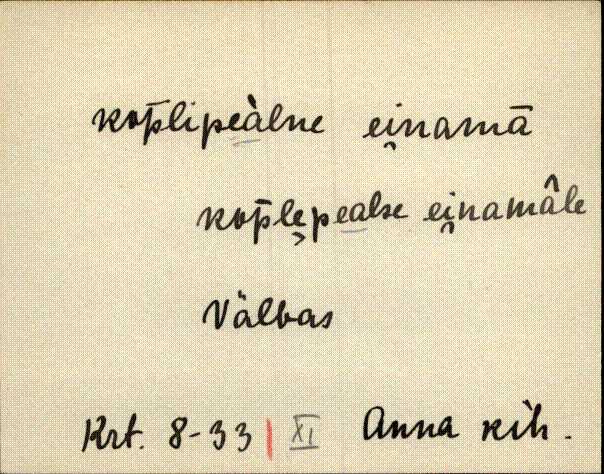 kop̄lipeàlne ei̯namā
kop̄lepealse ei̯namâle
Välbas
Krt. 8-33 | XI Anna kih.